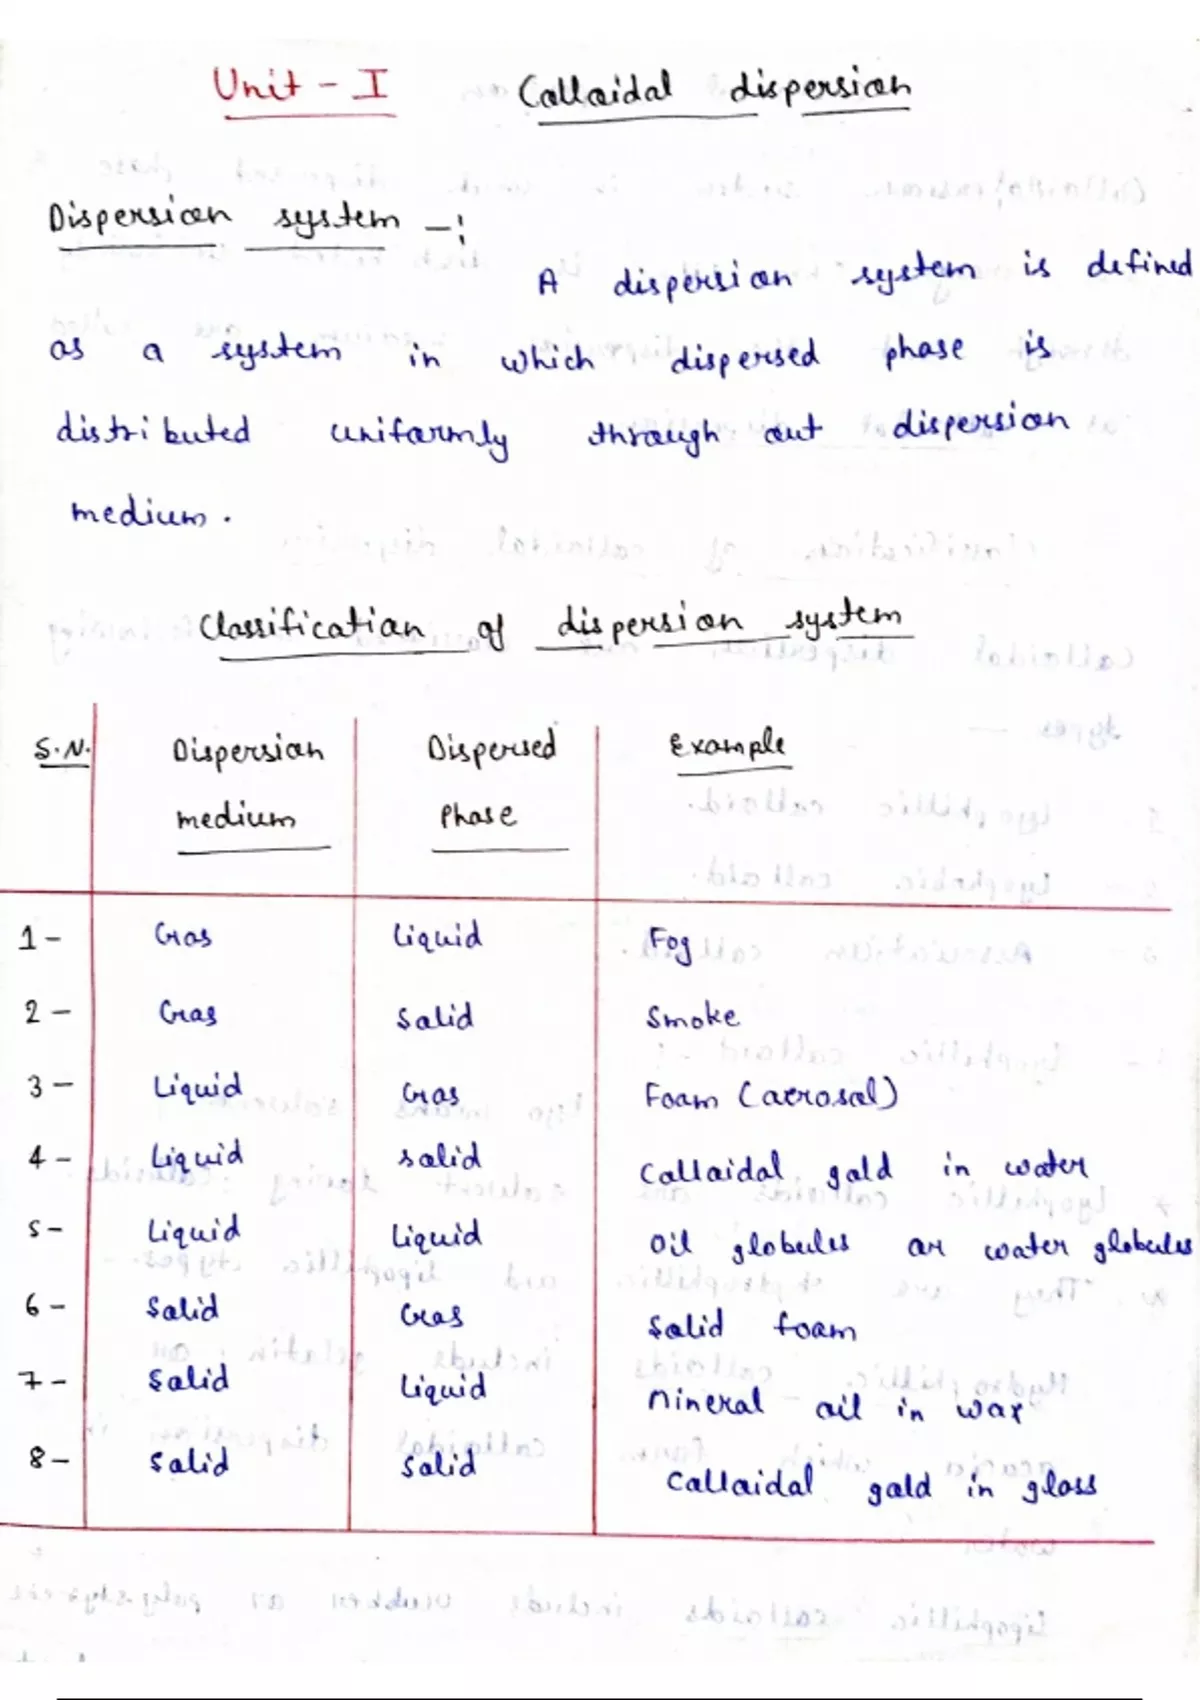 Unit - I Colloidal dispersion
Dispersion system -:
A dispersion system is defined
as a system in which dispersed phase is
distributed uniformly through out dispersion
medium.
Classification of dispersion system
S.N. Dispersion medium Dispersed Phase Example
1- Gas Liquid Fog
2- Gas Solid Smoke
3- Liquid Gas Foam (aerosol)
4- Liquid solid Colloidal gold in water
5- Liquid Liquid Oil globules or water globules
6- Solid Gas Solid foam
7- Solid Liquid Mineral oil in wax
8- Solid Solid Colloidal gold in glass